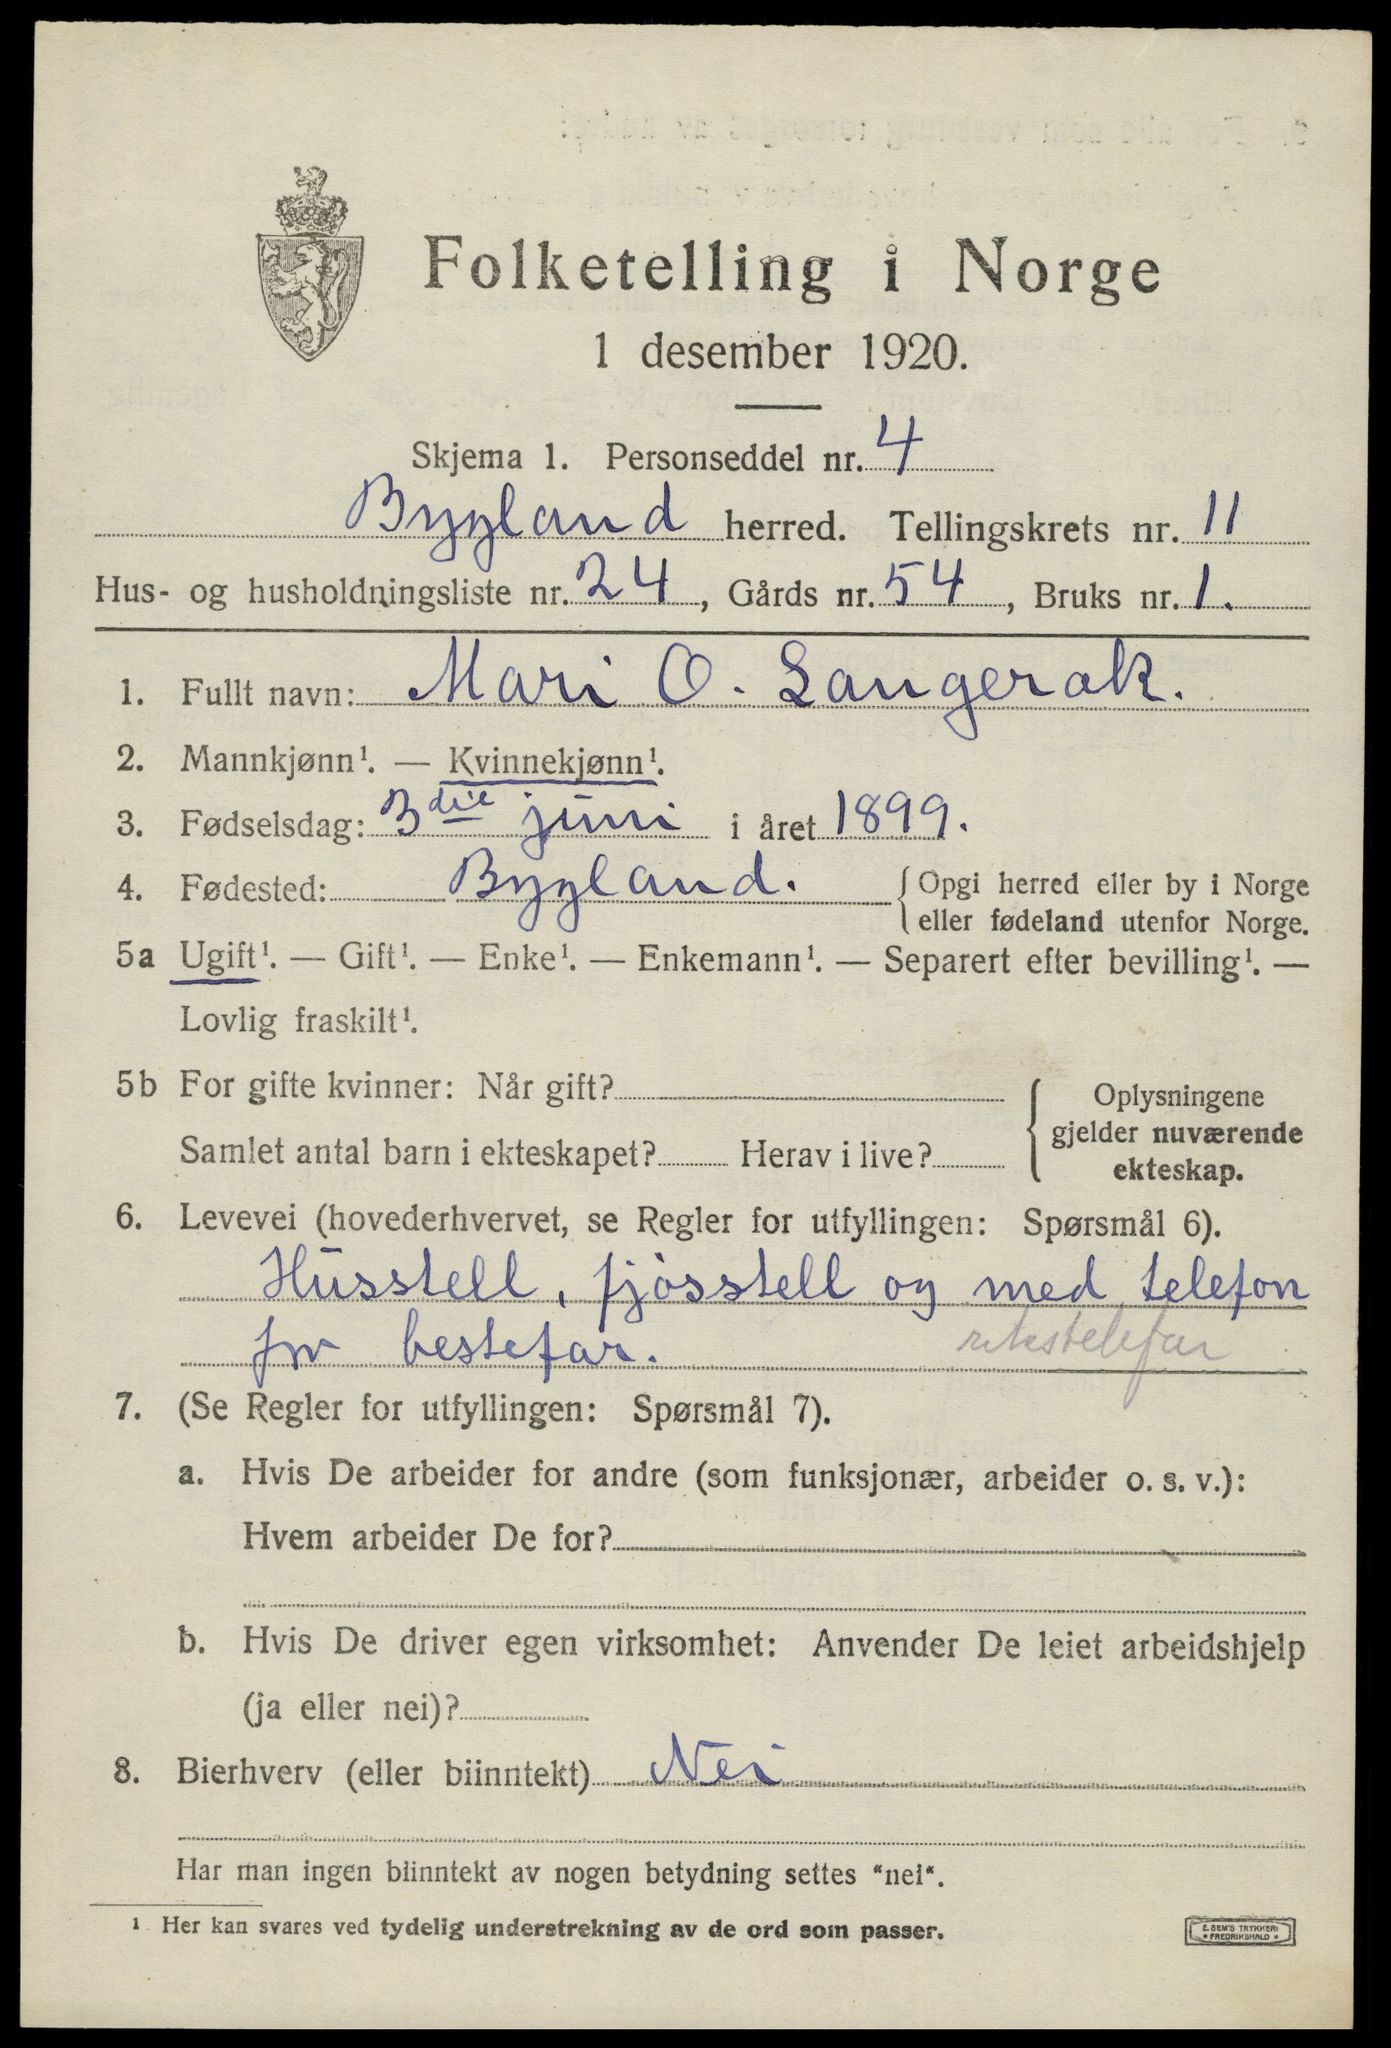 Folketelling i Norge
1 desember 1920.
Skjema 1. Personseddel nr. 4
Bygland herred. Tellingskrets nr. 11
Hus- og husholdningsliste nr. 24, Gårds nr. 54, Bruks nr. 1.
1. Fullt navn: Mari O. Langerak.
2. Mannkjønn¹. — Kvinnekjønn¹.
3. Fødselsdag: 3die juni i året 1899.
4. Fødested: Bygland. { Opgi herred eller by i Norge
eller fødeland utenfor Norge.
5a Ugift¹. — Gift¹. — Enke¹. — Enkemann¹. — Separert efter bevilling¹. —
Lovlig fraskilt¹.
5b For gifte kvinner: Når gift?
Samlet antal barn i ekteskapet? Herav i live?
Oplysningene
gjelder nuværende
ekteskap.
6. Levevei (hovederhvervet, se Regler for utfyllingen: Spørsmål 6).
Husstell, fjøsstell og med telefon
for bestefar. rikstelefon
7. (Se Regler for utfyllingen: Spørsmål 7).
a. Hvis De arbeider for andre (som funksjonær, arbeider o. s. v.):
Hvem arbeider De for?
b. Hvis De driver egen virksomhet: Anvender De leiet arbeidshjelp
(ja eller nei)?
8. Bierhverv (eller biinntekt) Nei
Har man ingen biinntekt av nogen betydning settes "nei".
1 Her kan svares ved tydelig understrekning av de ord som passer.
E. SEM'S TRYKKERI
• FREDRIKSHALD •